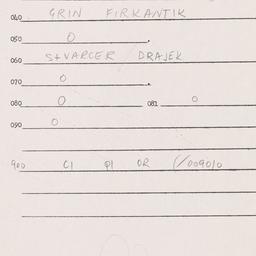 040 GRIN FIRKANTIK
050 0
060 SVARCER DRAJEK
070 0
080 0 081 0
090 0
900 CI PI OR (/00901,0